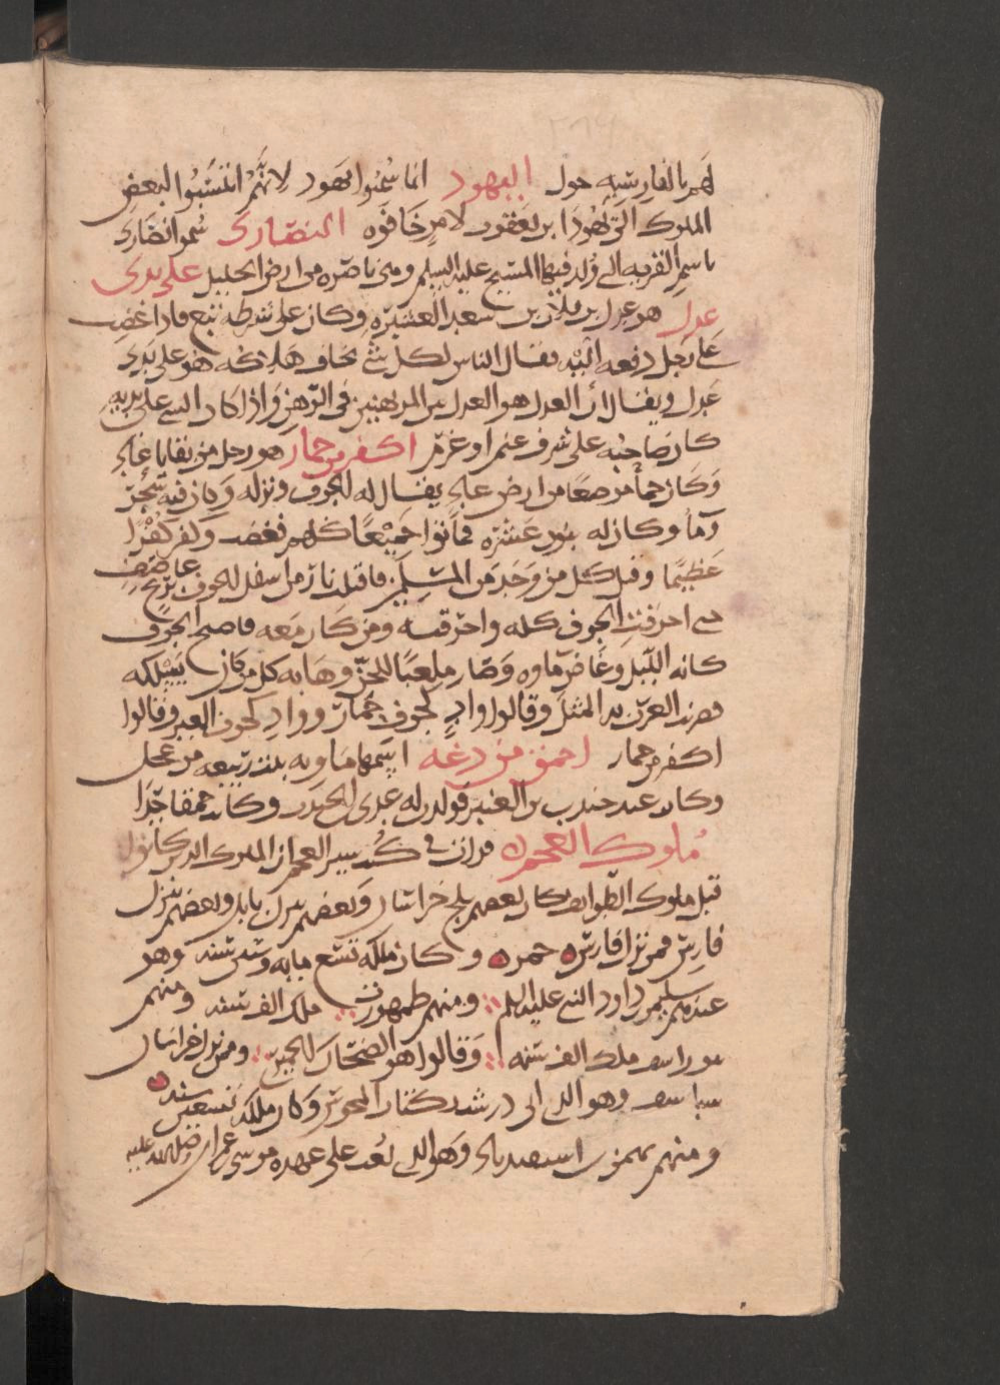 لهم بالفارسيه حول اليهود انما سُمّوا يهود لانّهم انتسَبُوا لبعض
الملوك الى يهُوذا بن يعقوب لامرٍ خافوه النصارى سُموا نصارى
باسم القريه التي وُلد فيها المسيح عليه السلم وهي ناصره من ارض الجليل على يدى
عدل هو عدل بن فلان بن سعد العشيره وكان على شرطه تبع فاذا غضب
على رجل دفعه اليه فقال الناس لكل شي يخاف هلاكه هو على يدى
عدل ويقال ان العدل هو العدل بين المرتهنين في الرّهن واذا كان الشي على يديه
كان صاحبه على شرف غنم او غرم اكفر من حمار هو رجل من بقايا عاد
وكان حما من صعا من ارض عاد يقال له الجوف ونزله وكان فيه شجر
وما وكان له بنون عشره فماتوا جميعًا كلهم فغضب وكفر كُفْرًا
عَظيمًا وقتل كل من وجد من المسلمين فاقبلت نار من اسفل الجوف بريح عاصف
حتى احرقت الجوف كله واحرقته ومن كان معه فاصبح الجوف
كانه الليل وغاض ماوه وصار ملعبًا للجن وهابه كل من كان يسلكه
فضرب العرب به المثل وقالوا وادٍ كجوف حمار ووادٍ كجوف العير وقالوا
اكفر من حمار احمق من دغه اسمها ماويه بنت ربيعه من عجل
وكان عند جندب بن العنبر فولدت له عدى بن جندب وكانت حمقا جدًا
ملوك العجم قرات في كتب سير العجم ان الملوك الذين كانوا
قبل ملوك الطوايف كان بعضهم ببلخ خراسان وبعضهم ينزل بابل وبعضهم ينزل
فارس فمن نزل فارس جم وكان ملكه تسع مايه وستين سنه وهو
عندهم سليمن بن داود النبي عليه السلم ومنهم طهمورث ملك الف سنه ومنهم
بيوراسف ملك الف سنه وقالوا هو الضحاك الحميرى ومن نزل خراسان
وهو الذي اتى زردشت بكتاب المجوس وكان ملكه تسعين سنه
ومنهم بهمن اسفنديار وهو الذي بُعث على عهده موسى بن عمران صلى الله عليه